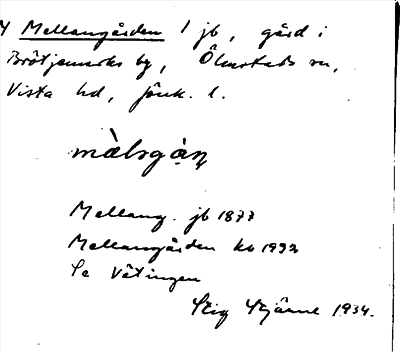 Mellangården 1 jb, gård i
Brötjemarks by, Ölmstads sn,
Vista hd, Jönk. l.
màlsgàṇ
Mellang. jb 1877
Mellangården kb 1932
Se Vätingen
Stig Stjärne 1934.